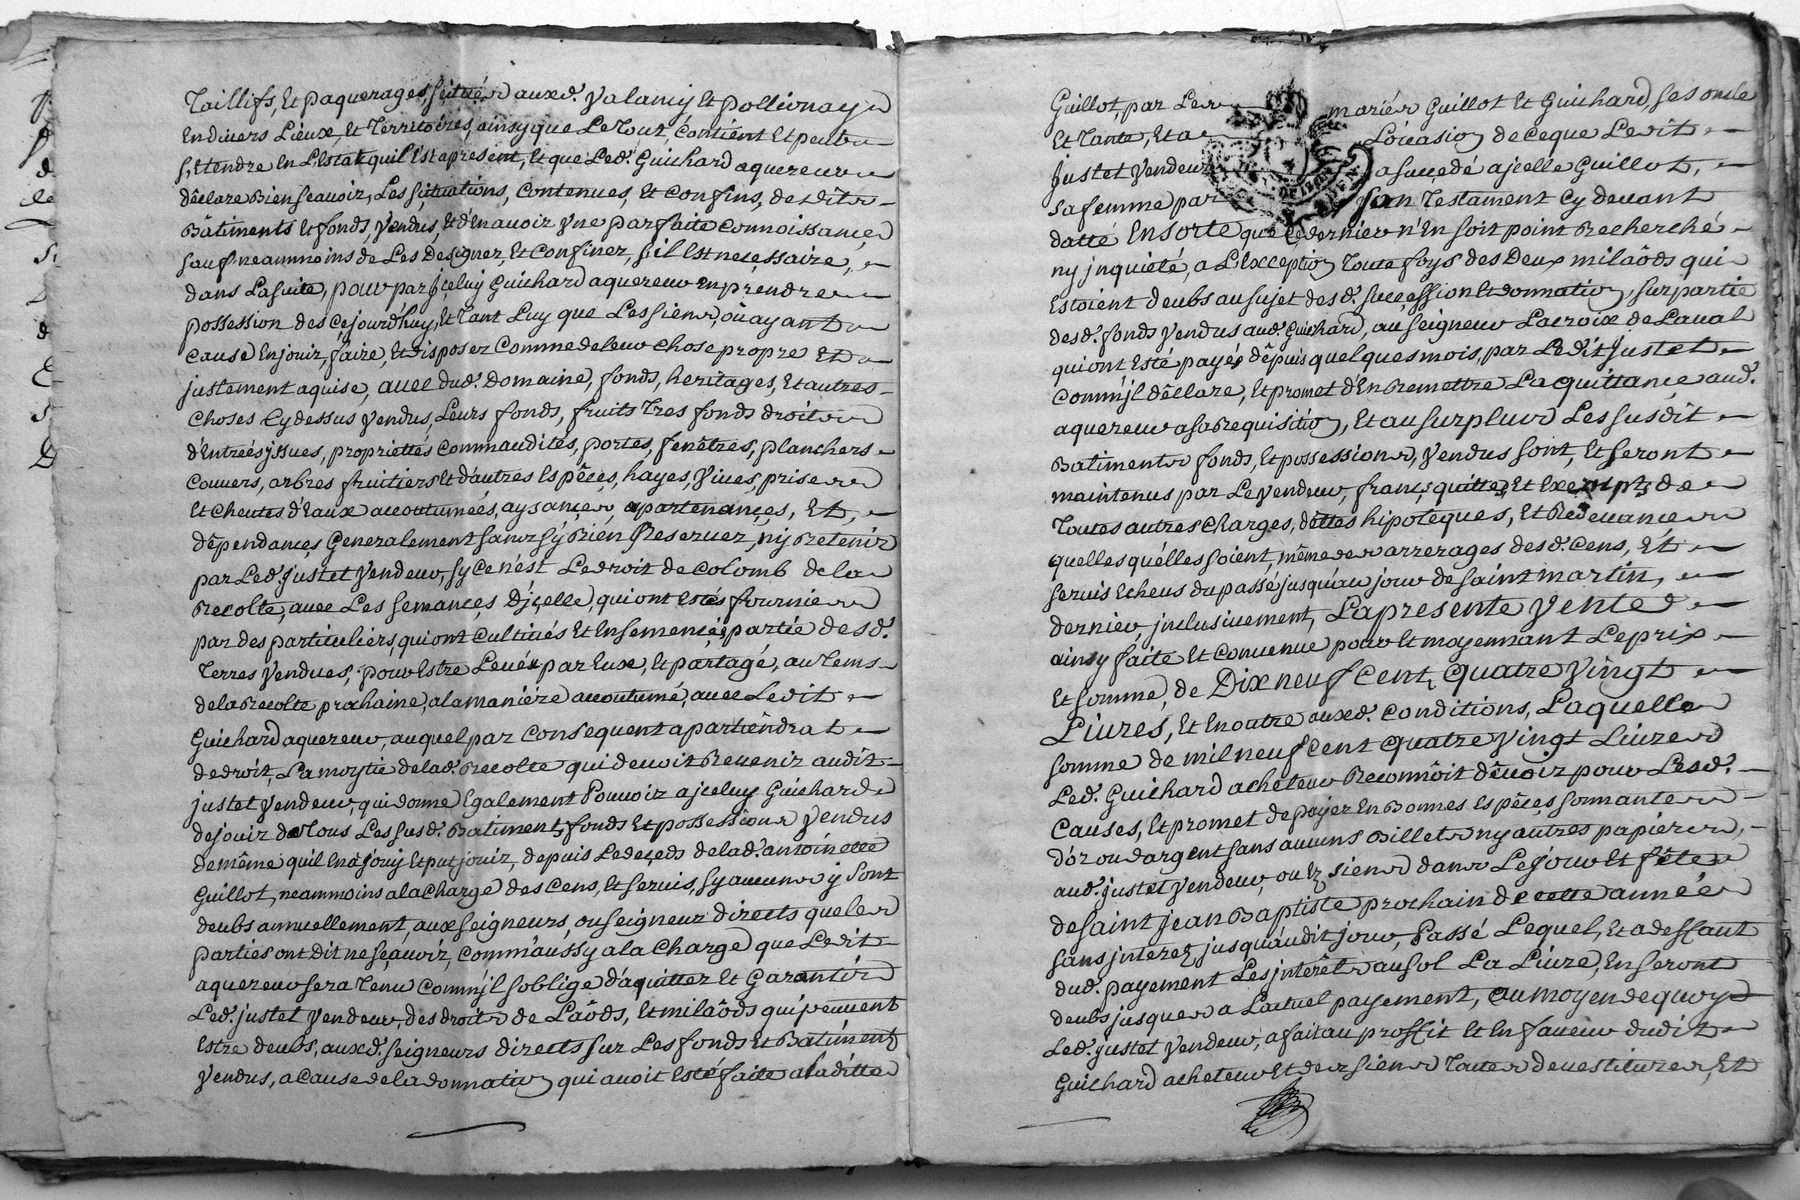 Taillifs, Et paquerages, scitués auxd. Valancy Et pollionnay
En divers Lieux, Et Territoires, ainsy que Le Tout, contient Et peut
S'Etendre En L'Estat quil Est apresent, Et que Led. Guichard aquereur
dêclare Bien Sçauoir, Les situations, contenues, Et confins, desdits
Bâtiments Et fonds, Vendus, Et d'En auoir Vne parfaite connoissance
sauf neammoins de Les Designer Et Confiner, s'il Est necessaire,
dans La suite, pour par jceluy Guichard aquereur En prendre
possession des Cejourd'huy, Et Tant Luy que Les siens, où ayant
cause En jouir, faire, Et disposer Comme de leur chose propre Et
justement aquise, auec dud. Domaine, fonds, heritages, Et autres
choses Cy dessus Vendus, Leurs fonds, fruits Tres fonds droits
d'Entrées yssues, propriettés commaudités, portes, fenêtres, planchers
Couuers, arbres fruitiers Et d'autres Espêces, hayes, Viues, prises
Et cheutes d'Eaux accoutumées, aysances, apartenances, Et,
dêpendances Generalement sans s'y Rien Reseruer, ny Retenir
par Led. justet Vendeur, sy ce n'est Le droit de colomb de la
Recolte, auec Les semances D'jcelle, qui ont Estés fournies
par des particuliers, qui ont Cultiués Et Ensemencés partie desd.
Terres Vendues, pour Estre Leués par Eux, Et partagé, au Tems
de la Recolte prochaine, a la maniére accoutumé, auec Ledit
Guichard aquereur, auquel par consequent apartiendrat
de droit, La moytié de lad. Recolte qui deuoit Reuenir audit
justet Vendeur, qui donne Egalement Pouuoir a jceluy Guichard
de jouir de Tous Les susd. Batiments, fonds Et possessions Vendus
de même qu'il En a jouy Et put jouir, depuis Le deceds de lad. antoinette
Guillot, neammoins a la Charge des Cens, Et seruis, sy aucuns y sont
deubs annuellement, aux seigneurs, ou seigneur directs que les
parties ont dit ne sçauoir, comm'aussy a la charge que Ledit
aquereur sera Tenu comm'jl s'oblige d'aquitter Et Garantir
Led. justet Vendeur, des droits de Laôds, Et milaôds qui peuuent
Estre deubs, auxd. seigneurs directs sur Les fonds Et Batiments
Vendus, a cause de la donnation qui auoit Esté faite a laditte
Guillot, par Les mariés Guillot Et Guichard, ses oncle
Et Tante, Et a L'ocasion de ceque Ledit
justet Vendeur a succedé a jcelle Guillot,
sa femme par son Testament Cy deuant
datté En sorte que ce dernier n'En soit point Recherché
ny jnquieté, a L'Exception Toute foys des Deux milaôds qui
Estoient deubs au sujet desd. succession Et donnation, sur partie
desd. fonds Vendus aud. Guichard, au seigneur Lacroix de Laual
qui ont Esté payés dêpuis quelques mois, par Ledit justet
comm'jl dêclare, Et promet d'En Remettre La quittance aud.
aquereur a sa Requisition, Et au surplus Les susdit
Batiments fonds, Et possessions, Vendus sont, Et seront
maintenus par Le Vendeur, francs quittes, Et Exempts de
Toutes autres charges, dêttes hipoteques, Et Redeuances
quelles qu'élles soient, même des arrerages desd. cens, Et
seruis Echeus du passé jusqu'au jour de saint martin,
dernier, jnclusiuement, La presente Vente
ainsy faite Et conuenue pour Et moyennant Le prix
Et somme, de Dix neuf Cent, quatre Vingt
Liures, Et En outre auxd. conditions, Laquelle
somme de mil neuf cent quatre Vingt Liures
Led. Guichard acheteur Reconnôit dêuoir pour Lesd.
Causes, Et promet de payer En Bonnes Espêces sonnantes
d'or ou d'argent sans aucuns Billets ny autres papiers,
aud. justet Vendeur, ou Ez siens dans Le jour Et fête
de saint jean Baptiste prochain de cette année
sans jnterez, jusqu'audit jour, Passé Lequel, Et a deffaut
dud. payement Les jntérêts au sol La Liure, En seront
deubs jusques a L'actuel payement, au moyen de quoy
Led. justet Vendeur, a fait au proffit Et En faueur dudit
Guichard acheteur Et des siens Toutes deuestitures, Et